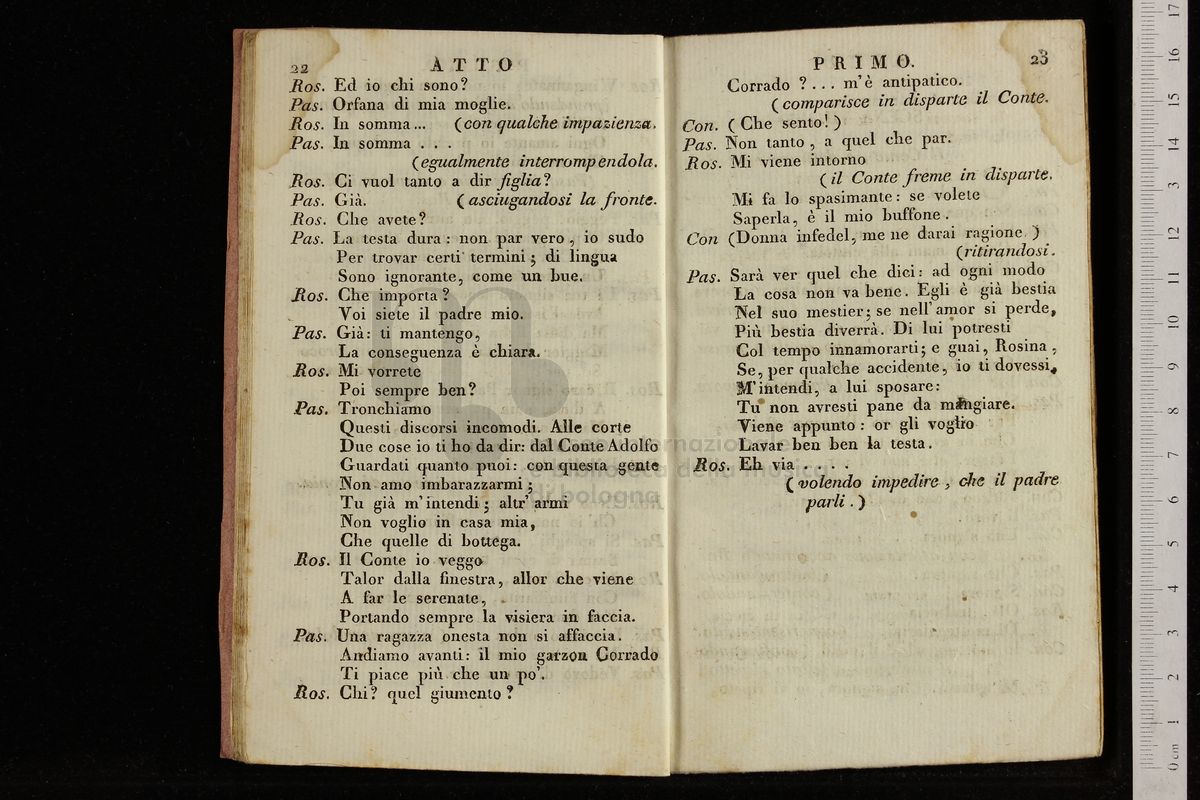 22 ATTO
Ros. Ed io chi sono?
Pas. Orfana di mia moglie.
Ros. In somma... (con qualche impazienza.
Pas. In somma . . .
(egualmente interrompendola.
Ros. Ci vuol tanto a dir figlia?
Pas. Già. (asciugandosi la fronte.
Ros. Che avete?
Pas. La testa dura: non par vero, io sudo
Per trovar certi termini; di lingua
Sono ignorante, come un bue.
Ros. Che importa?
Voi siete il padre mio.
Pas. Già: ti mantengo,
La conseguenza è chiara.
Ros. Mi vorrete
Poi sempre ben?
Pas. Tronchiamo
Questi discorsi incomodi. Alle corte
Due cose io ti ho da dir: dal Conte Adolfo
Guardati quanto puoi: con questa gente
Non amo imbarazzarmi;
Tu già m'intendi; altr' armi
Non voglio in casa mia,
Che quelle di bottega.
Ros. Il Conte io veggo
Talor dalla finestra, allor che viene
A far le serenate,
Portando sempre la visiera in faccia.
Pas. Una ragazza onesta non si affaccia.
Andiamo avanti: il mio garzon Corrado
Ti piace più che un po'.
Ros. Chi? quel giumento?
PRIMO. 23
Corrado ?... m'è antipatico.
(comparisce in disparte il Conte.
Con. (Che sento!)
Pas. Non tanto, a quel che par.
Ros. Mi viene intorno
(il Conte freme in disparte.
Mi fa lo spasimante: se volete
Saperla, è il mio buffone.
Con (Donna infedel, me ne darai ragione.)
(ritirandosi.
Pas. Sarà ver quel che dici: ad ogni modo
La cosa non va bene. Egli è già bestia
Nel suo mestier; se nell'amor si perde,
Più bestia diverrà. Di lui potresti
Col tempo innamorarti; e guai, Rosina,
Se, per qualche accidente, io ti dovessi,
M'intendi, a lui sposare:
Tu non avresti pane da mangiare.
Viene appunto: or gli voglio
Lavar ben ben la testa.
Ros. Eh via . . . .
(volendo impedire, che il padre
parli.)
museo internazionale
biblioteca della musica
di bologna
0 cm 1 2 3 4 5 6 7 8 9 10 11 12 13 14 15 16 17